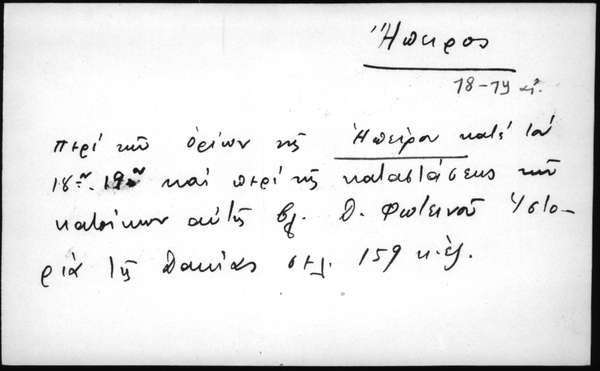 Ἤπειρος
18-19 αἰ.
περί τῶν ὁρίων τῆς Ἠπείρου κατά τόν
18ον-19ον καί περί τῆς καταστάσεως τῶν
κατοίκων αὐτῆς βλ. Δ. Φωτεινοῦ Ἱστο-
ρία τῆς Δακίας σελ. 159 κ.ἑξ.